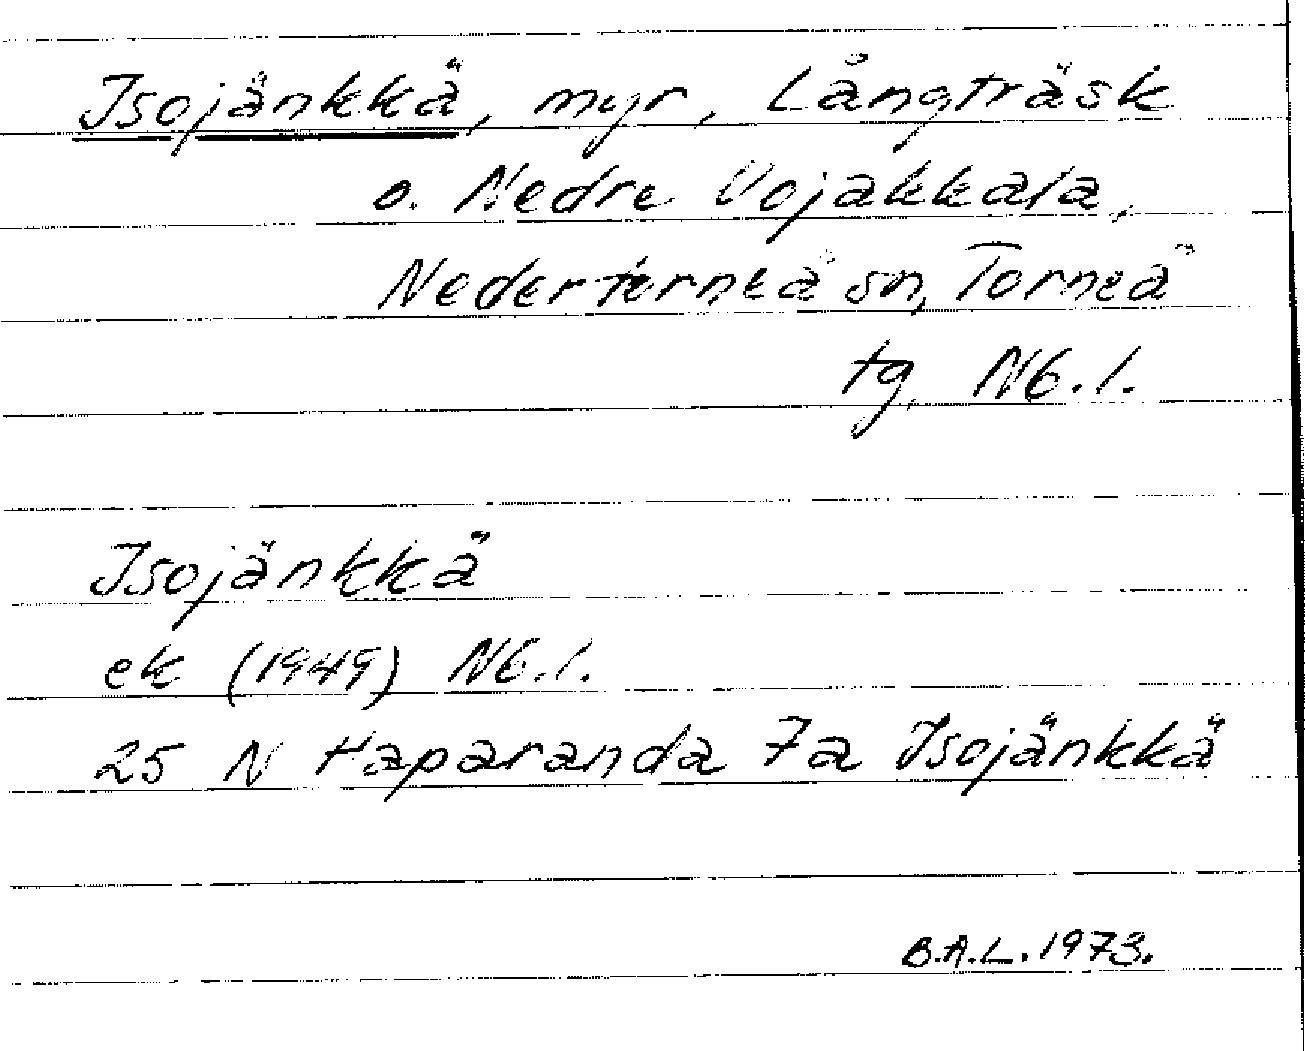 Isojänkkä, myr, Långträsk
o. Nedre Vojakkala,
Nedertorneå sn, Torneå
tg, Nb.l.
Isojänkkä
ek (1949) Nb.l.
25 N Haparanda 7a Isojänkkä
B.A.L. 1973.